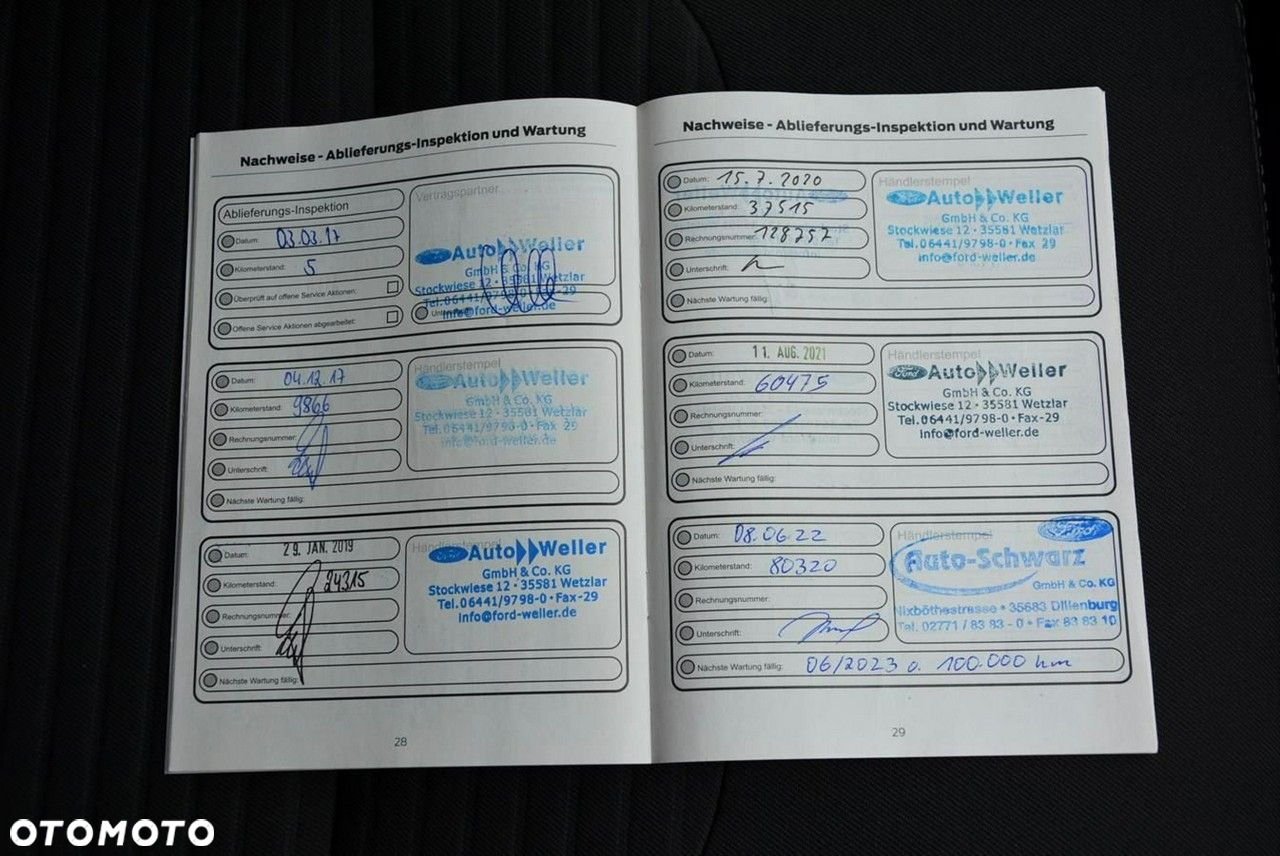 Nachweise - Ablieferungs-Inspektion und Wartung
Ablieferungs-Inspektion
Datum: 03.03.17
Kilometerstand: 5
Überprüft auf offene Service Aktionen:
Offene Service Aktionen abgearbeitet:
Vertragspartner
Ford Auto Weller
GmbH & Co. KG
Stockwiese 12 · 35581 Wetzlar
Tel. 06441/9798-0 · Fax-29
info@ford-weller.de
Datum: 04.12.17
Kilometerstand: 9866
Rechnungsnummer:
Unterschrift:
Nächste Wartung fällig:
Händlerstempel
Ford Auto Weller
GmbH & Co. KG
Stockwiese 12 · 35581 Wetzlar
Tel. 06441/9798-0 · Fax 29
info@ford-weller.de
Datum: 29. JAN. 2019
Kilometerstand: 24315
Rechnungsnummer:
Unterschrift:
Nächste Wartung fällig:
Händlerstempel
Ford Auto Weller
GmbH & Co. KG
Stockwiese 12 · 35581 Wetzlar
Tel. 06441/9798-0 · Fax-29
info@ford-weller.de
28
Nachweise - Ablieferungs-Inspektion und Wartung
Datum: 15.7.2020
Kilometerstand: 37515
Rechnungsnummer: 128757
Unterschrift:
Nächste Wartung fällig:
Händlerstempel
Ford Auto Weller
GmbH & Co. KG
Stockwiese 12 · 35581 Wetzlar
Tel. 06441/9798-0 · Fax 29
info@ford-weller.de
Datum: 11. AUG. 2021
Kilometerstand: 60475
Rechnungsnummer:
Unterschrift:
Nächste Wartung fällig:
Händlerstempel
Ford Auto Weller
GmbH & Co. KG
Stockwiese 12 · 35581 Wetzlar
Tel. 06441/9798-0 · Fax-29
info@ford-weller.de
Datum: 08.06.22
Kilometerstand: 80320
Rechnungsnummer:
Unterschrift:
Nächste Wartung fällig: 06/2023 o. 100.000 km
Händlerstempel
Ford
Auto-Schwarz
GmbH & Co. KG
Nixböthestrasse · 35683 Dillenburg
Tel. 02771 / 83 83 - 0 · Fax 83 83 10
29
OTOMOTO